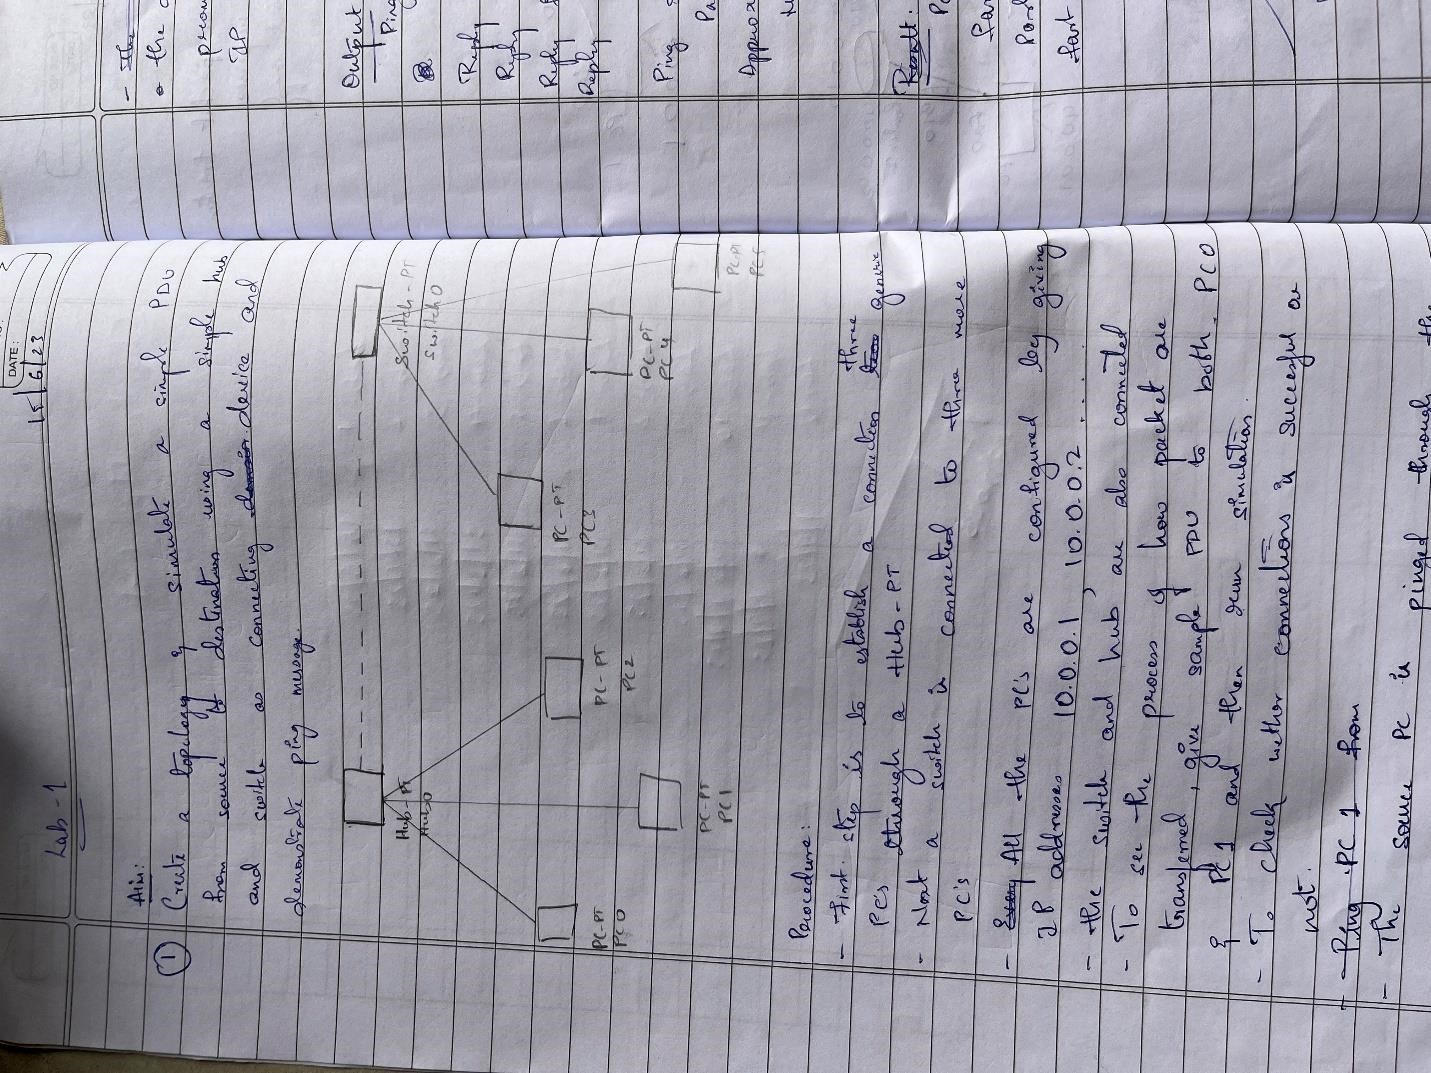 DATE:
15/6/23
Lab-1
Aim:
① Create a topology of simulate a simple PDU
from source to destination using a simple hub
and switch as connecting device and
demonstrate ping message.
Switch-PT
Switch0
Hub-PT
Hub0
PC-PT
PC0
PC-PT
PC1
PC-PT
PC2
PC-PT
PC3
PC-PT
PC4
PC-PT
Procedure:
- First step is to establish a connection three generic
PC's through a Hub-PT
- Next a switch is connected to three more
PC's
- All the PC's are configured by giving
IP addresses 10.0.0.1, 10.0.0.2 ....
- the switch and hub are also connected
- To see the process of how packet are
transferred, give sample PDU to both PC0
& PC1 and then run simulation.
- To check wether connections is successful or
not.
- Ping PC1 from
- The source PC is pinged through the
- the
IP
Output
Ping
Reply
Reply
Reply
Reply
Ping
Approx
Result: